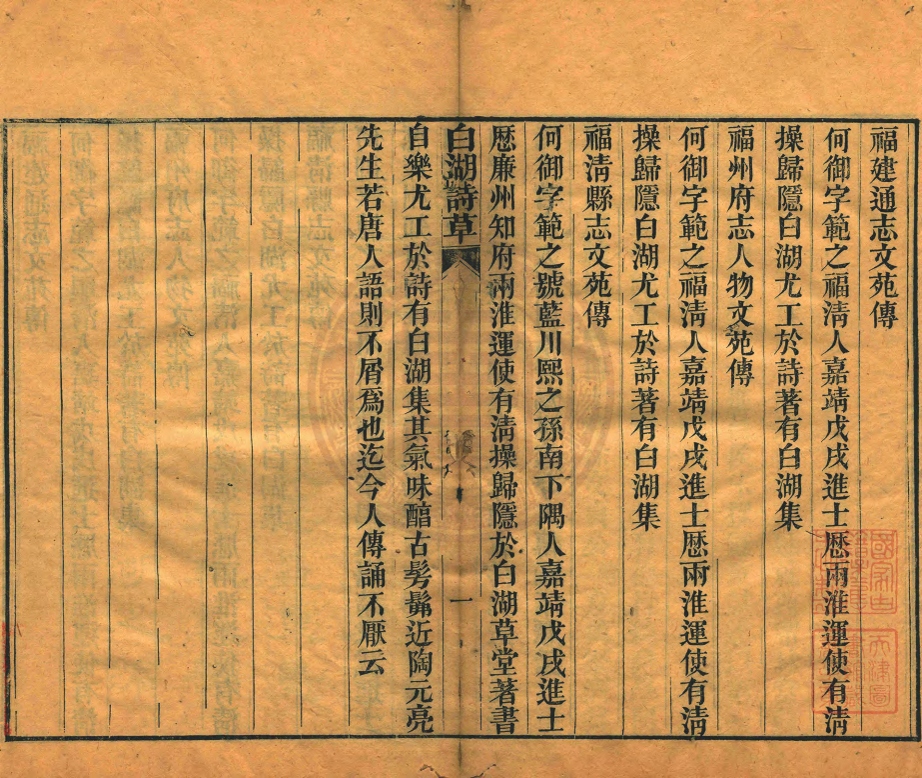 福建通志文苑傳
何御字範之福淸人嘉靖戊戌進士歷兩淮運使有淸
操歸隱白湖尤工於詩著有白湖集
福州府志人物文苑傳
何御字範之福淸人嘉靖戊戌進士歷兩淮運使有淸
操歸隱白湖尤工於詩著有白湖集
福淸縣志文苑傳
何御字範之號藍川熙之孫南下隅人嘉靖戊戌進士
歷廉州知府兩淮運使有淸操歸隱於白湖草堂著書
白湖詩草
一
自樂尤工於詩有白湖集其氣味醕古髣髴近陶元亮
先生若唐人語則不屑爲也迄今人傳誦不厭云